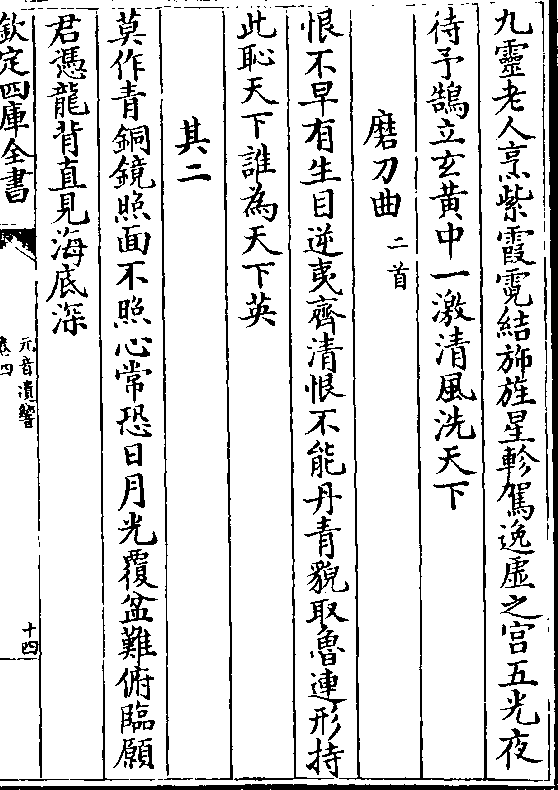 九靈老人烹紫霞霓結斾旌星軫駕逸虛之宮五光夜
待予鵠立玄黃中一激清風洗天下
磨刀曲 二首
恨不早有生目逆夷齊清恨不能丹青貌取魯連形持
此恥天下誰為天下英
其二
莫作青銅鏡照面不照心常恐日月光覆盆難俯臨願
君憑龍背直見海底深
欽定四庫全書
元音遺響
卷四
十四